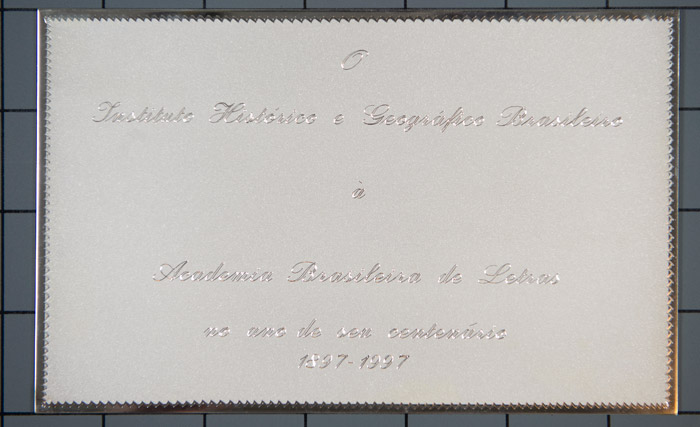 O
Instituto Histórico e Geográfico Brasileiro
à
Academia Brasileira de Letras
no ano de seu centenário
1897-1997